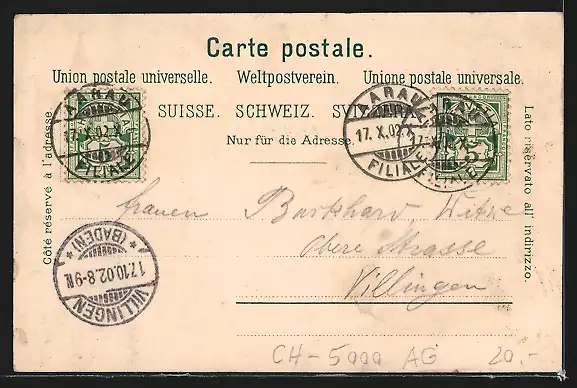 Carte postale.
Union postale universelle. Weltpostverein. Unione postale universale.
SUISSE. SCHWEIZ. SVIZZERA.
Nur für die Adresse
Côté réservé à l'adresse
Lato riservato all' indirizzo.
AARAU
17.X.02.X
FILIALE
AARAU
17.X.02
FILIALE
frauen Burkhard, Witwe
obere Strasse
Villingen
VILLINGEN
17.10.02.8-9N
* (BADEN) *
CH-5000 AG 20.-